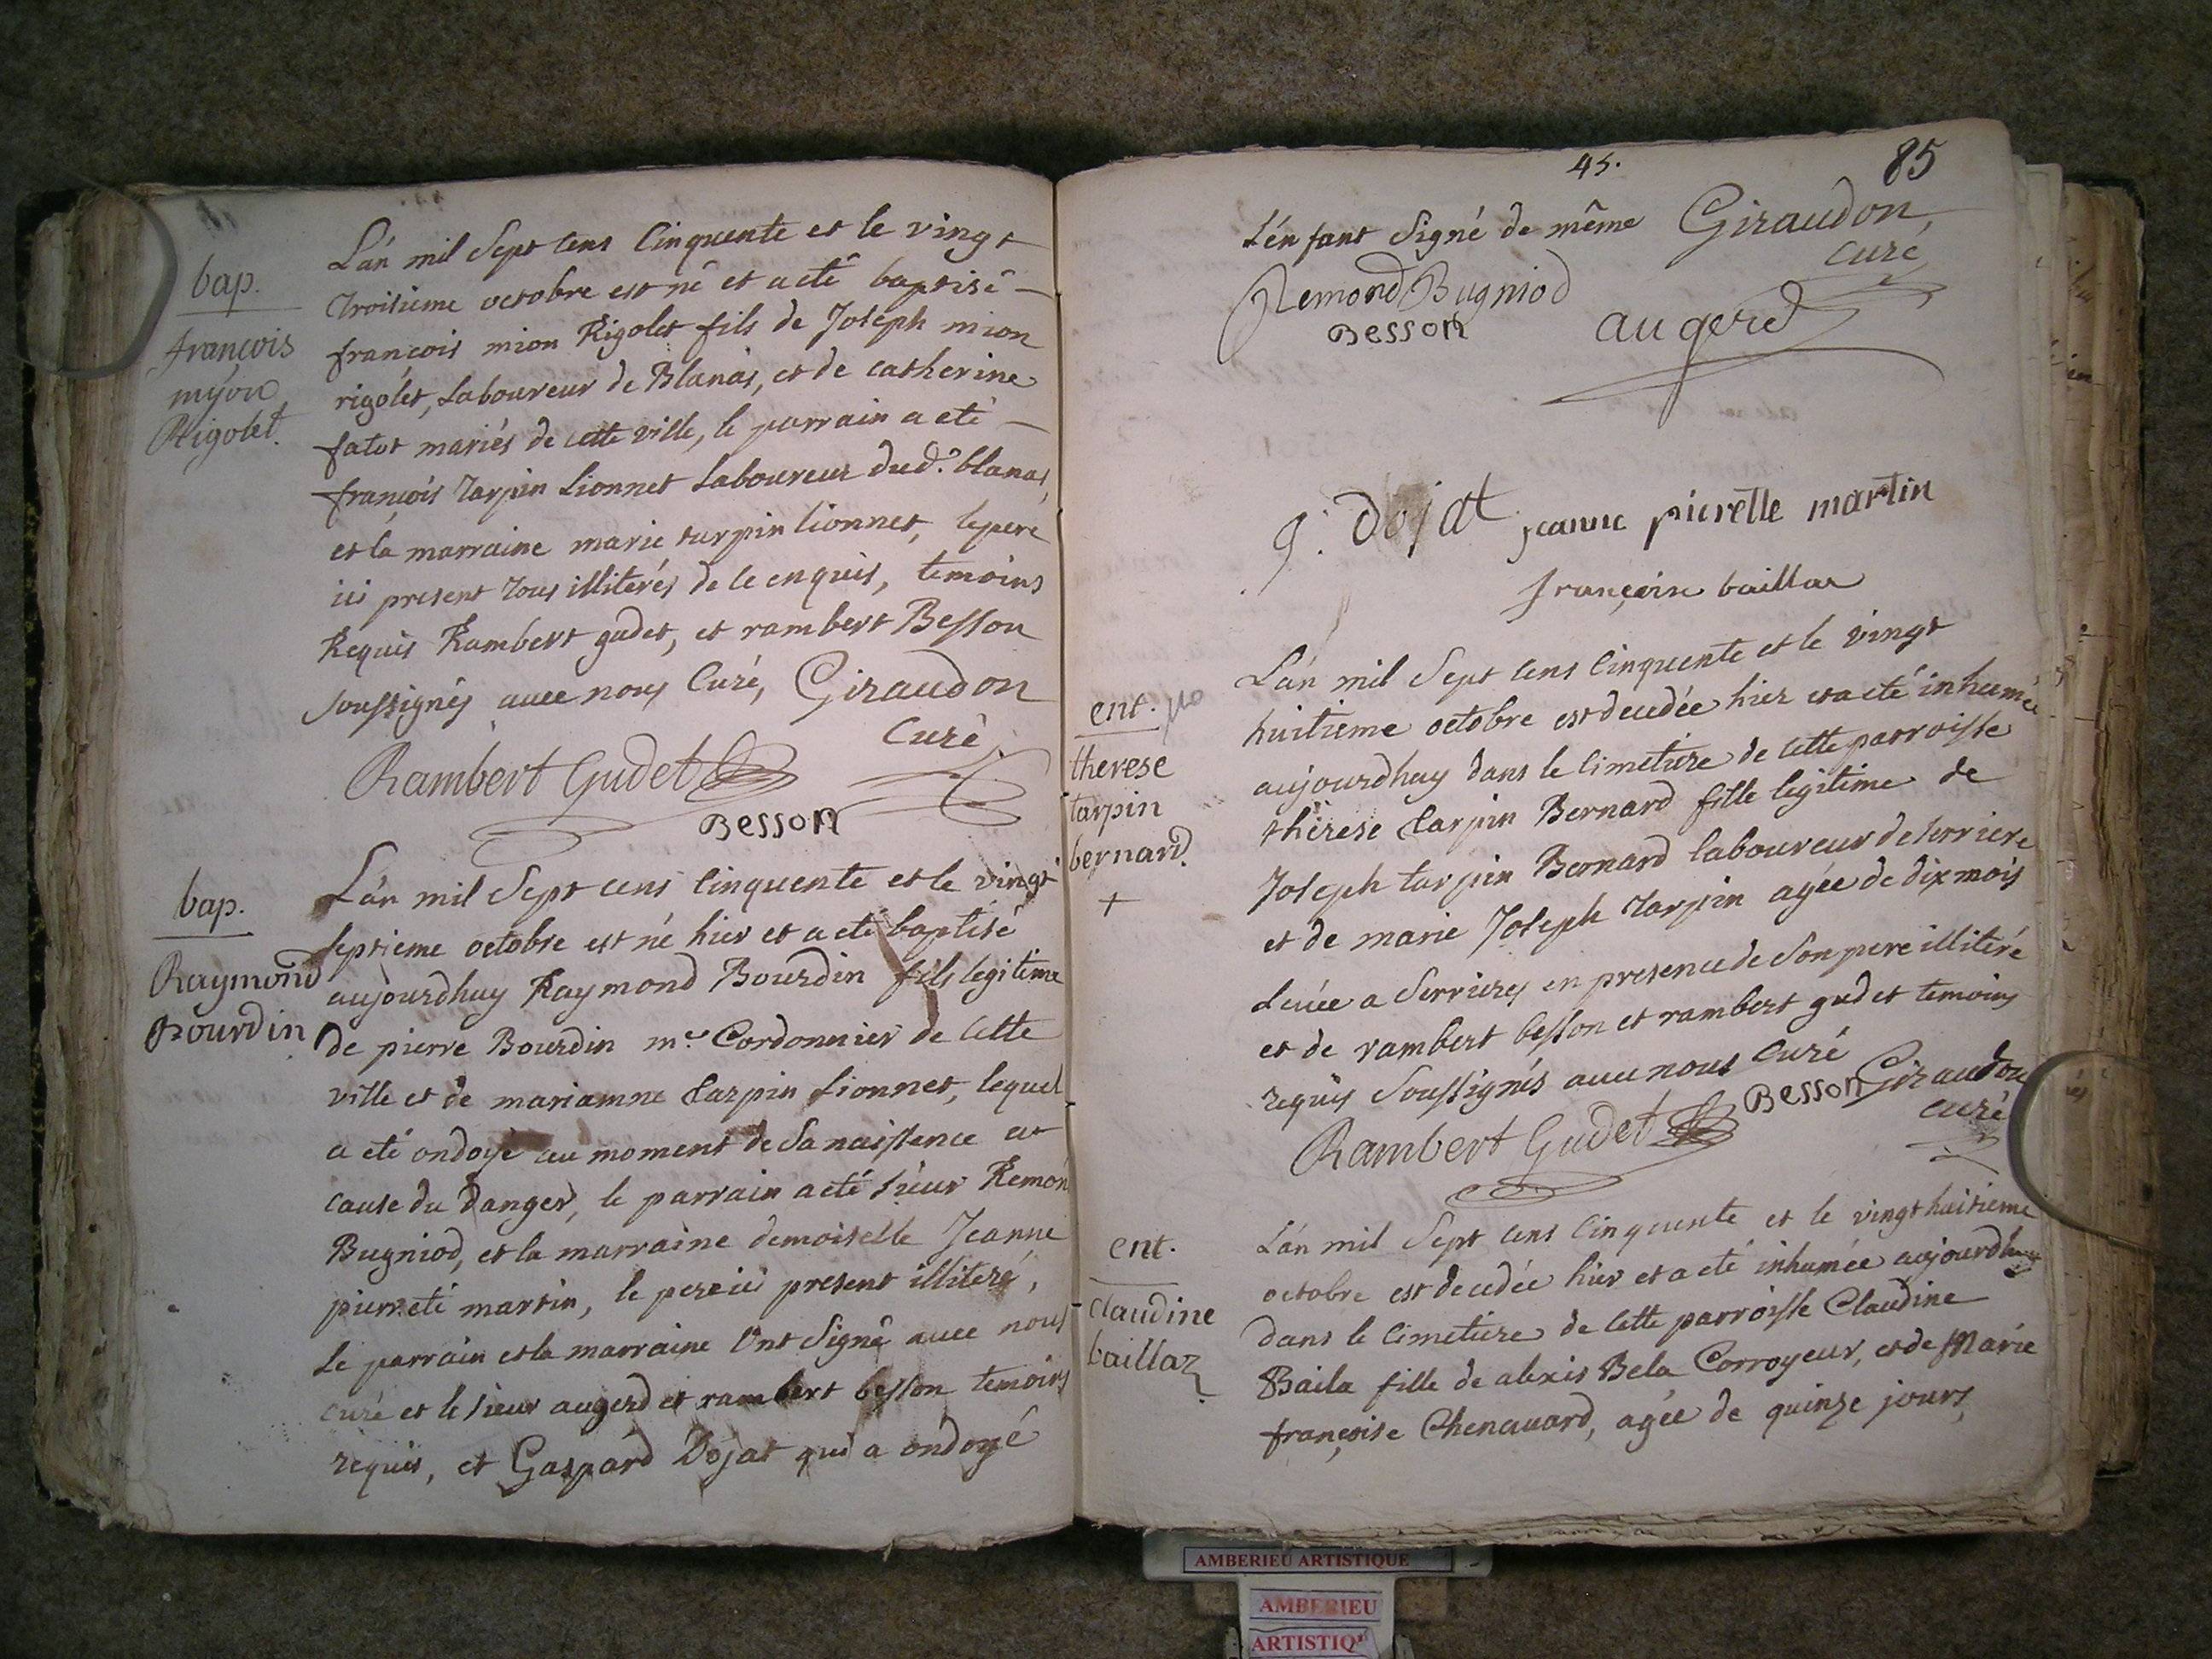 bap.
françois
myon
Rigolet.
L'an mil Sept cens Cinquente et le vingt
troisieme octobre est né et a eté baptisé
françois mion Rigolet fils de Joseph mion
rigolet, Laboureur de Blanas, et de catherine
fatot mariés de cette ville, le parrain a eté
françois tarpin Lionnet Laboureur dud.t blanas,
et la marraine marie tarpin lionnet, le pere
ici present tous illiterés de ce enquis, temoins
Requis Rambert gudet, et rambert Besson
soussignés avec nous Curé, Giraudon
Curé
Rambert Gudet
Besson
bap.
Raymond
Bourdin
L'an mil Sept cens Cinquente et le vingt
septieme octobre est né hier et a eté baptisé
aujourdhuy Raymond Bourdin fils legitime
de pierre Bourdin m.e Cordonnier de cette
ville et de mariamne tarpin lionnet, lequel
a eté ondoyé au moment de Sa naissence a
cause du danger, le parrain a eté sieur Remon
Bugniod, et la marraine demoiselle Jeanne
pierreti martin, le pere ici present illiteré,
Le parrain et la marraine Ont Signé avec nous
curé et le sieur augerd et rambert besson temoins
requis, et Gaspard Dojat qui a ondoyé
45.
85
L'enfant Signé de même Giraudon
Curé
Remond Bugniod
Besson
augerd
g. dojat jeanne pierette martin
françoise baillaz
ent.
therese
tarpin
bernard.
+
L'an mil Sept cens Cinquente et le vingt
huitieme octobre est decedée hier et a eté inhumée
aujourdhuy dans le Cimetiere de cette parroisse
therese tarpin Bernard fille legitime de
Joseph tarpin Bernard laboureur de serriere
et de marie Joseph tarpin agée de dix mois
Levée a Serrieres en presence de Son pere illiteré
et de rambert besson et rambert gudet temoins
requis Soussignés avec nous Curé
Besson Giraudon
curé
Rambert Gudet
ent.
Claudine
baillaz
L'an mil Sept cens Cinquente et le vingt huitieme
octobre est decedée hier et a eté inhumée aujourdhuy
dans le Cimetiere de cette parroisse Claudine
Baila fille de alexis Bela Corroyeur, et de Marie
françoise Chenavard, agée de quinze jours,
AMBERIEU ARTISTIQUE
AMBERIEU
ARTISTIQ